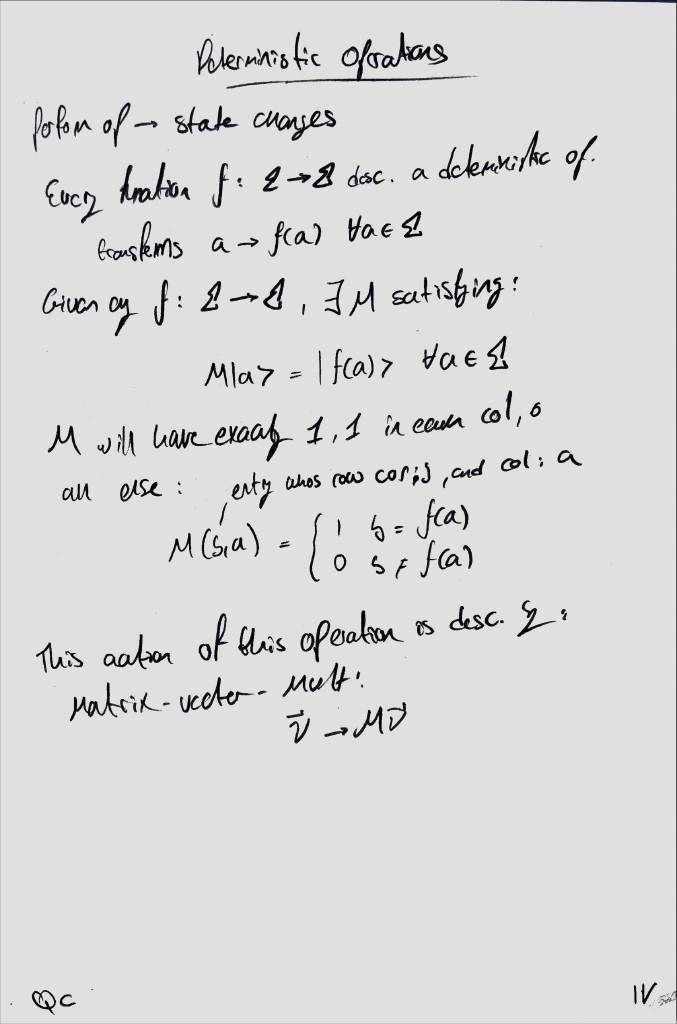 Deterministic Operations
Perform op → state changes
Every function f: Σ → Σ desc. a deterministic op.
transforms a → f(a) ∀a ∈ Σ
Given any f: Σ → Σ, ∃ M satisfying:
M|a> = |f(a)> ∀a ∈ Σ
M will have exactly 1, 1 in each col, 0
all else: entry whos row cor: b, and col: a
M(b,a) = { 1 b = f(a)
0 b ≠ f(a)
This action of this operation is desc. by:
Matrix-vector-mult:
v⃗ → Mv⃗
QC
IV